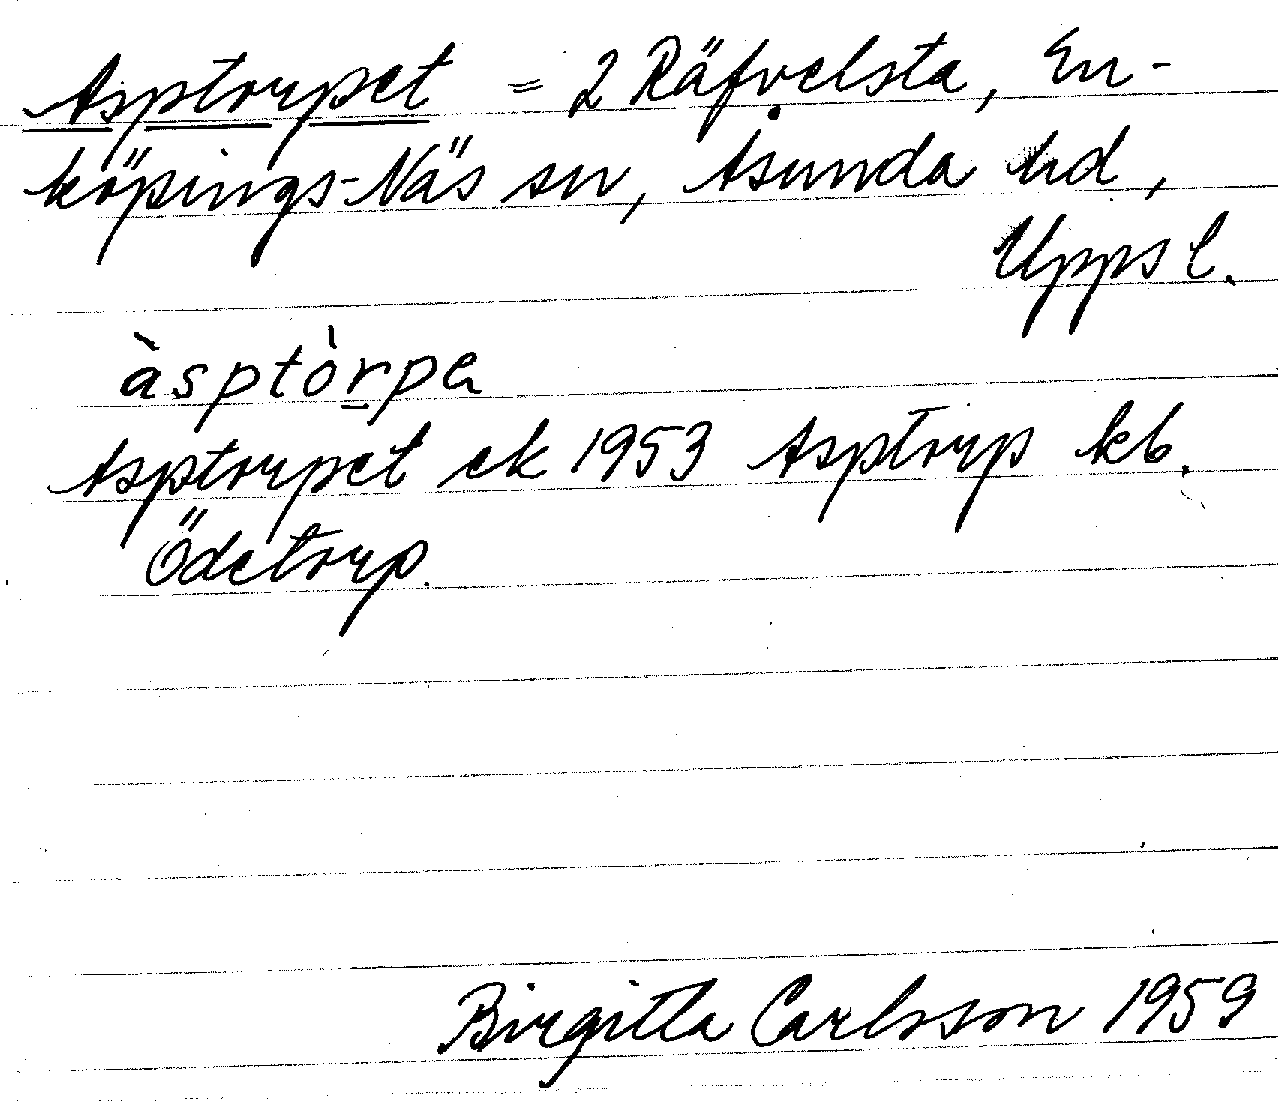 Asptorpet = 2 Räfvelsta, En-
köpings-Näs sn, Åsunda hd,
Uppsl.
àsptòrpa
Asptorpet ek 1953 Asptorp kb.
Ödetorp.
Birgitta Carlsson 1959